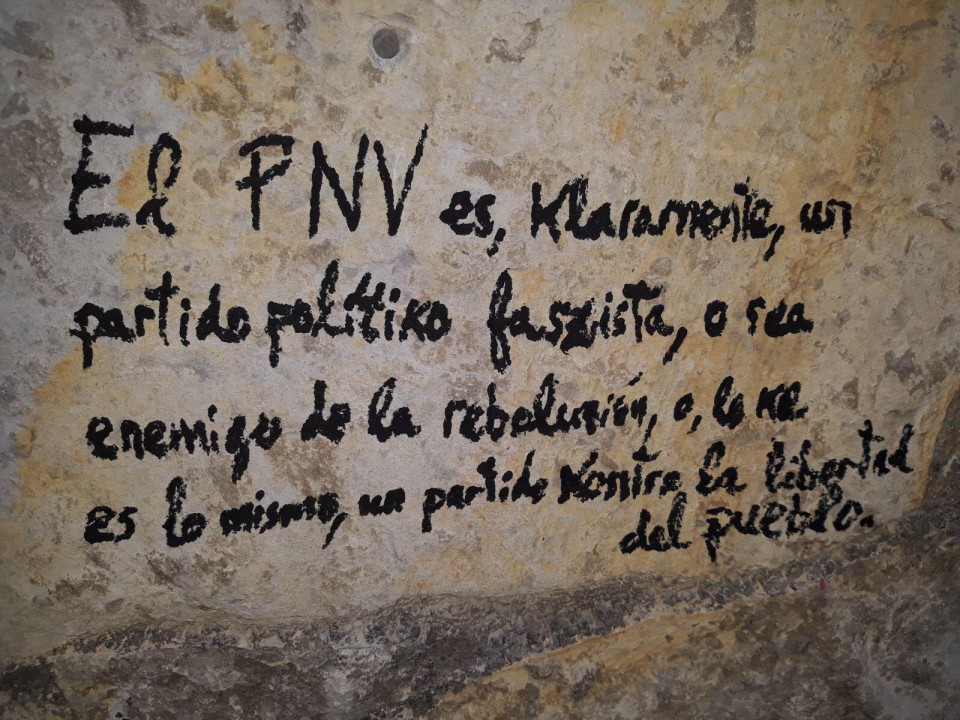 El PNV es, Klaramente, un
partido polítiko faszista, o sea
enemigo de la reboluzión, o, lo ke
es lo mismo, un partido Kontra la libertad
del pueblo.